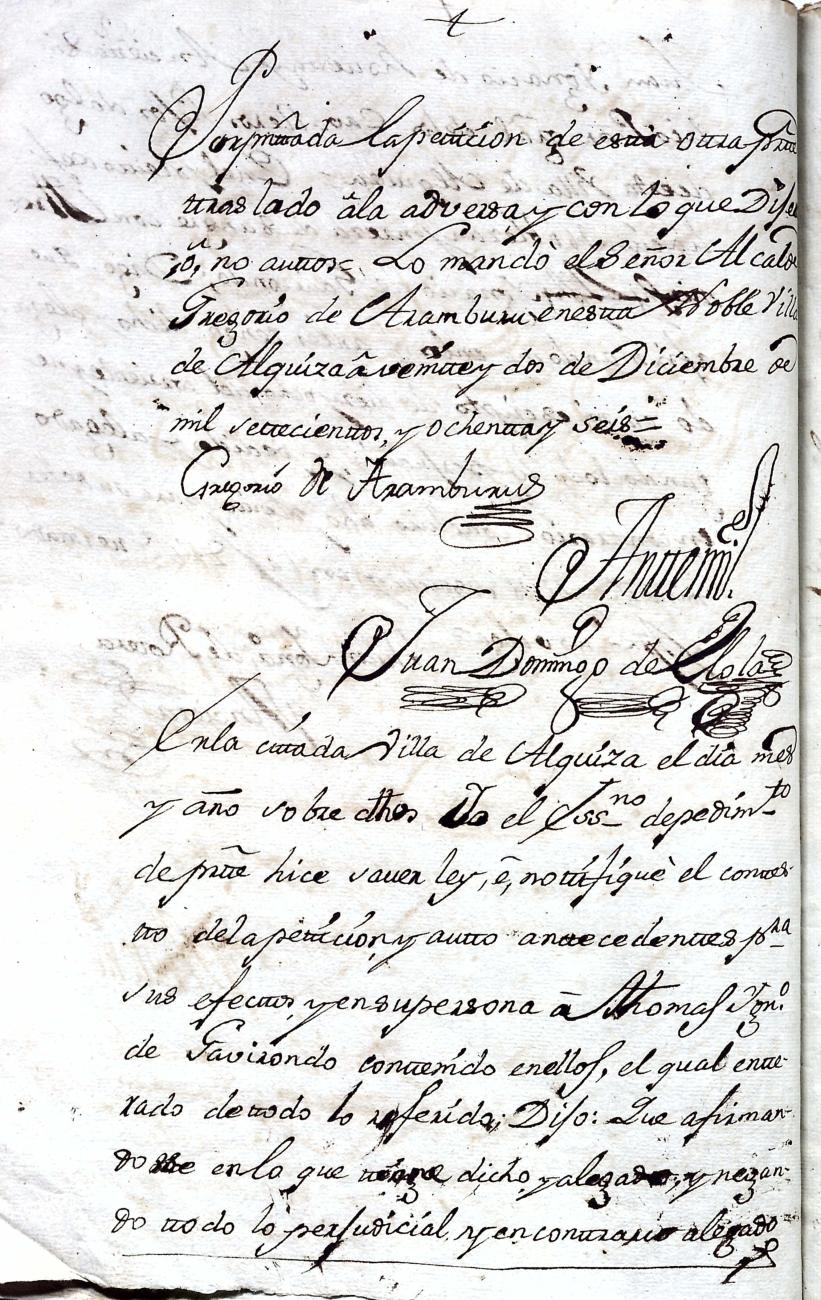 Por prttada la petticion de estta ottra prtte
ttraslado â la adversa, y con lo que Dije
ô, no auttos= Lo mandò el Señor Alcalde
Gregorio de Aramburu en estta Noble Villa
de Alquiza â veintte y dos de Diciembre de
mil settecienttos, y ochentta y seis=
Gregorio de Aramburu
Antte mi.
Juan Domingo de Llola
En la cittada Villa de Alquiza el dia mes
y año sobre dhos Yo el Essno de pedimto
de prtte hice saver ley, ê, nottifiquè el contes-
tto de la petticion, y autto anttecedenttes pra
sus efecttos, y en su persona â Thomas Ygn.o
de Gavirondo conttenido en ellos, el qual entte-
rado de ttodo lo referido; Dijo: Que afirman-
dose en lo que ttiene dicho, y alegado, y negan-
do ttodo lo perjudicial, y en conttrario alegado